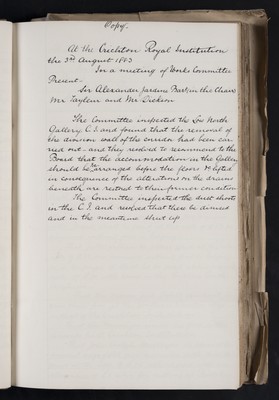 Copy.
At the Crichton Royal Institution
the 3rd August 1883
In a meeting of Works Committee
Present.
Sir Alexander Jardine Bart, in the Chair,
Mr Tayleur and Mr Dickson
The Committee inspected the Low North
Gallery C. I. and found that the removal of
the division wall of the corridor had been car
ried out - and they resolved to recommend to the
Board that the accommodation in the Gallery
should be arranged before the floors & lifted
in consequence of the alterations on the drains
beneath are restored to their former condition
The Committee inspected the dust shoots
in the C. I. and resolved that these be
and in the meantime shut up